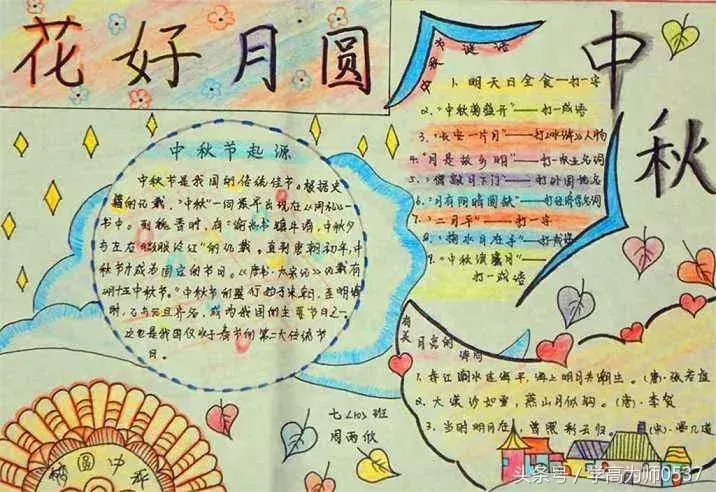 花好月圆
中秋
中秋节起源
中秋节是我国的传统佳节。根据史
籍的记载，"中秋"一词最早出现在《周礼》一
书中。到魏晋时，有"谕尚书镇牛渚，中秋夕
与左右微服泛江"的记载。直到唐朝初年，中
秋节才成为固定的节日。《唐书·太宗记》记载有
"八月十五中秋节"。中秋节的盛行始于宋朝，至明清
时，已与元旦齐名，成为我国的主要节日之一。
这也是我国仅次于春节的第二大传统节
日。
中秋节谜语
1、明天日全食—打一字
2、"中秋菊盛开"——打一成语
3、"长安一片月"——打《水浒》人物
4、"月是故乡明"——打一
5、"僧敲月下门"——打外国地名
6、"月有阴晴圆缺"——打经济学名词
7、"二月平"——打一字
8、"掬水月在手"——打成语
9、"中秋演
打一成语
有关月亮的诗句
1、春江潮水连海平，海上明月共潮生。(唐)张若虚
2、大漠沙如雪，燕山月似钩。(唐)李贺
3、当时明月在，曾照彩云归。(宋)晏几道
七〈10〉班
周雨欣
头条号 / 学高为师0537